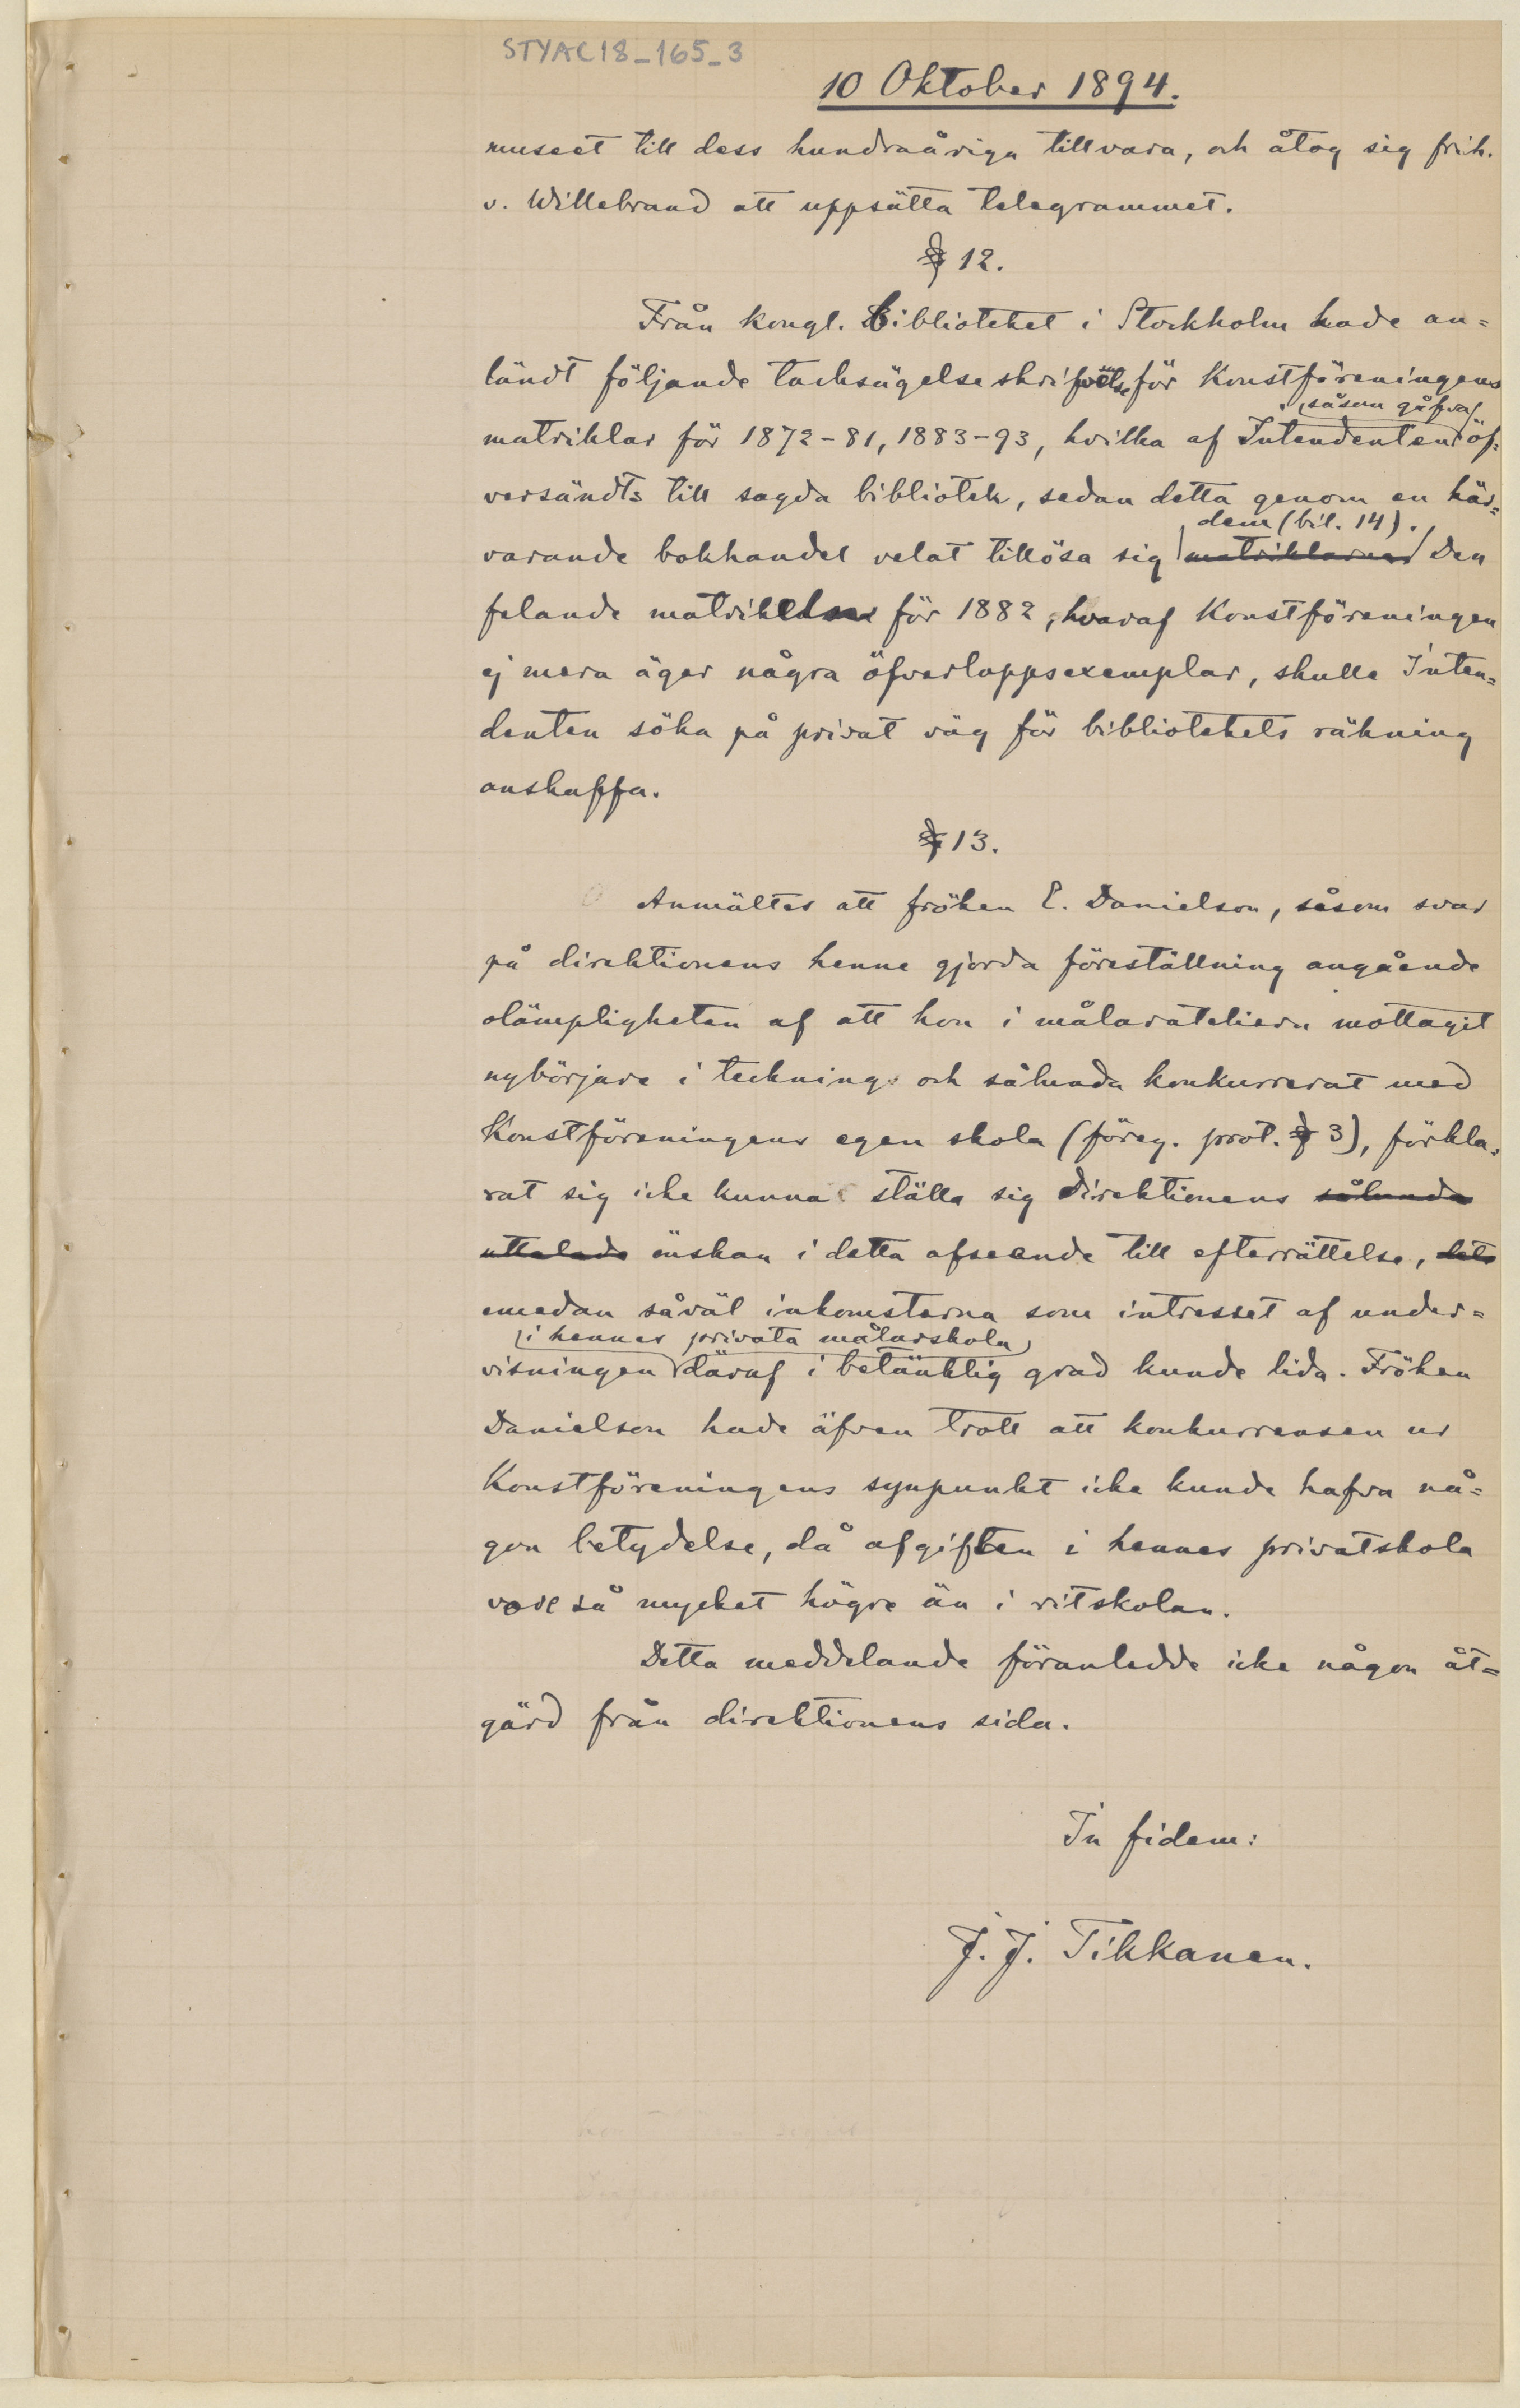 STYAC18_165_3
10 Oktober 1894.
museet till dess hundraåriga tillvara, och åtog sig frih.
v. Willebrand att uppsätta telegrammet.
§ 12.
Från kongl. Biblioteket i Stockholm hade an=
ländt följande tacksägelseskrifvelse för Konstföreningens
såsom gåfva
matriklar för 1872-81, 1883-93, hvilka af Intendenten öf=
versändts till sagda bibliotek, sedan detta genom en här=
dem (bil. 14).
varande bokhandel velat tillösa sig matriklarna Den
felande matrikeln för 1882, hvaraf Konstföreningen
ej mera äger några öfverloppsexemplar, skulle Inten=
denten söka på privat väg för bibliotekets räkning
anskaffa.
§ 13.
Anmältes att fröken E. Danielson, såsom svar
på direktionens henne gjorda föreställning angående
olämpligheten af att hon i målarateliern mottagit
nybörjare i teckning och sålunda konkurrerat med
Konstföreningens egen skola (föreg. prot. § 3), förkla=
rat sig icke kunna ställa sig direktionens sålunda
uttalade önskan i detta afseende till efterrättelse,
emedan såväl inkomsterna som intresset af under=
i hennes privata målarskola
visningen däraf i betänklig grad kunde lida. Fröken
Danielson hade äfven trott att konkurrensen ur
Konstföreningens synpunkt icke kunde hafva nå=
gon betydelse, då afgiften i hennes privatskola
vore så mycket högre än i ritskolan.
Detta meddelande föranledde icke någon åt=
gärd från direktionens sida.
In fidem:
J. J. Tikkanen.